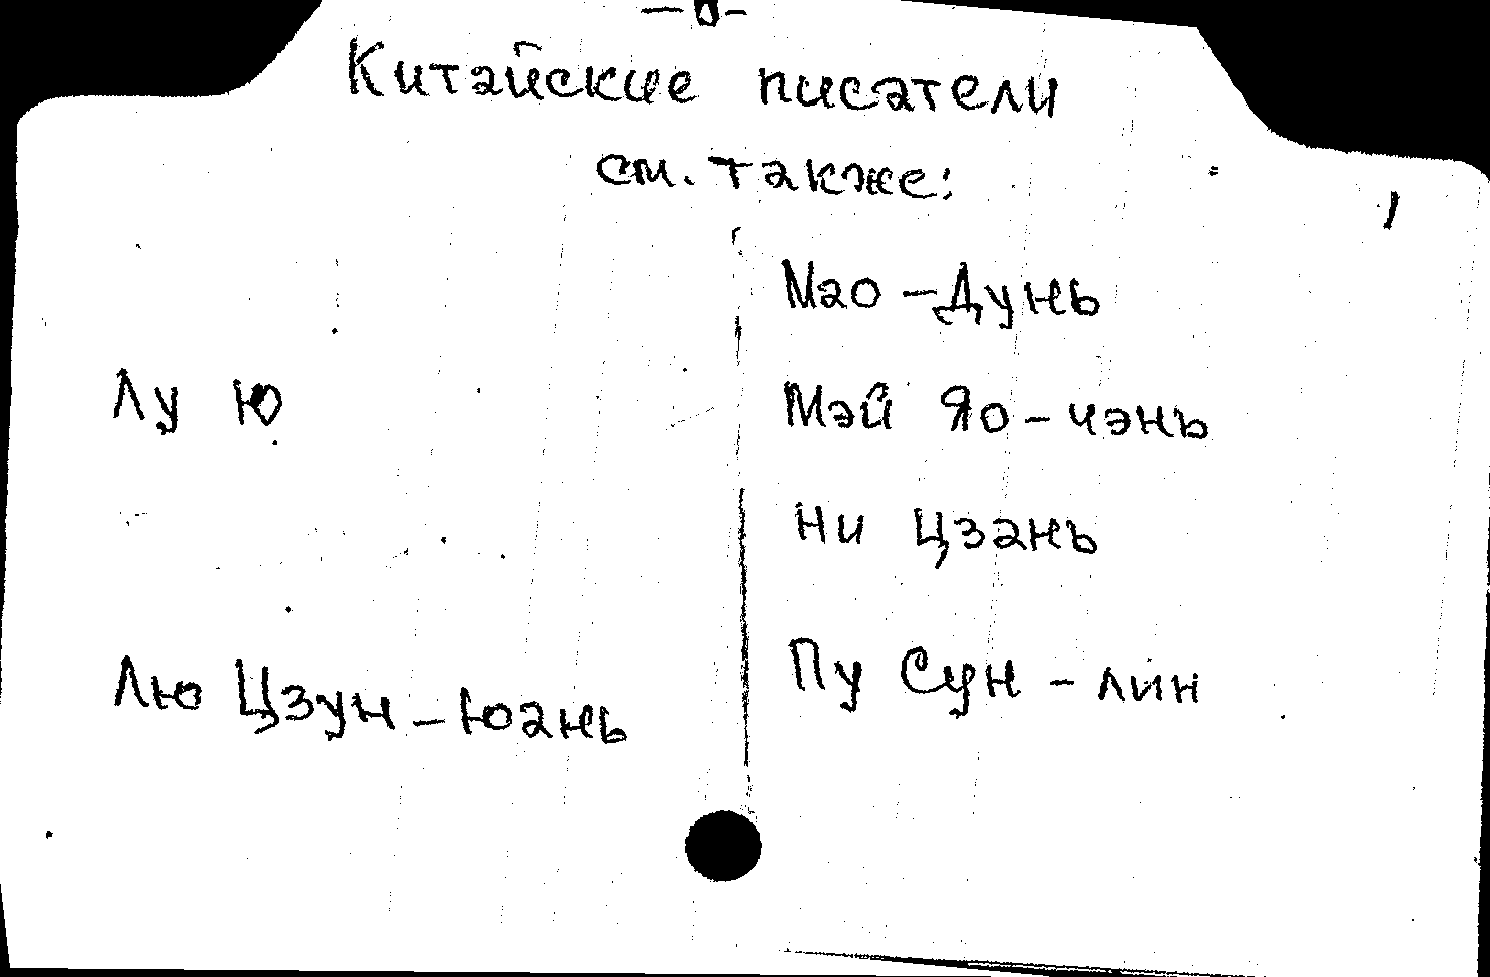 Китайские писатели
см. также:
Лу Ю
Лю Цзун-Юань
Мао-Дунь
Мэй Яо-чэнь
Ни Цзань
Пу Сун-лин